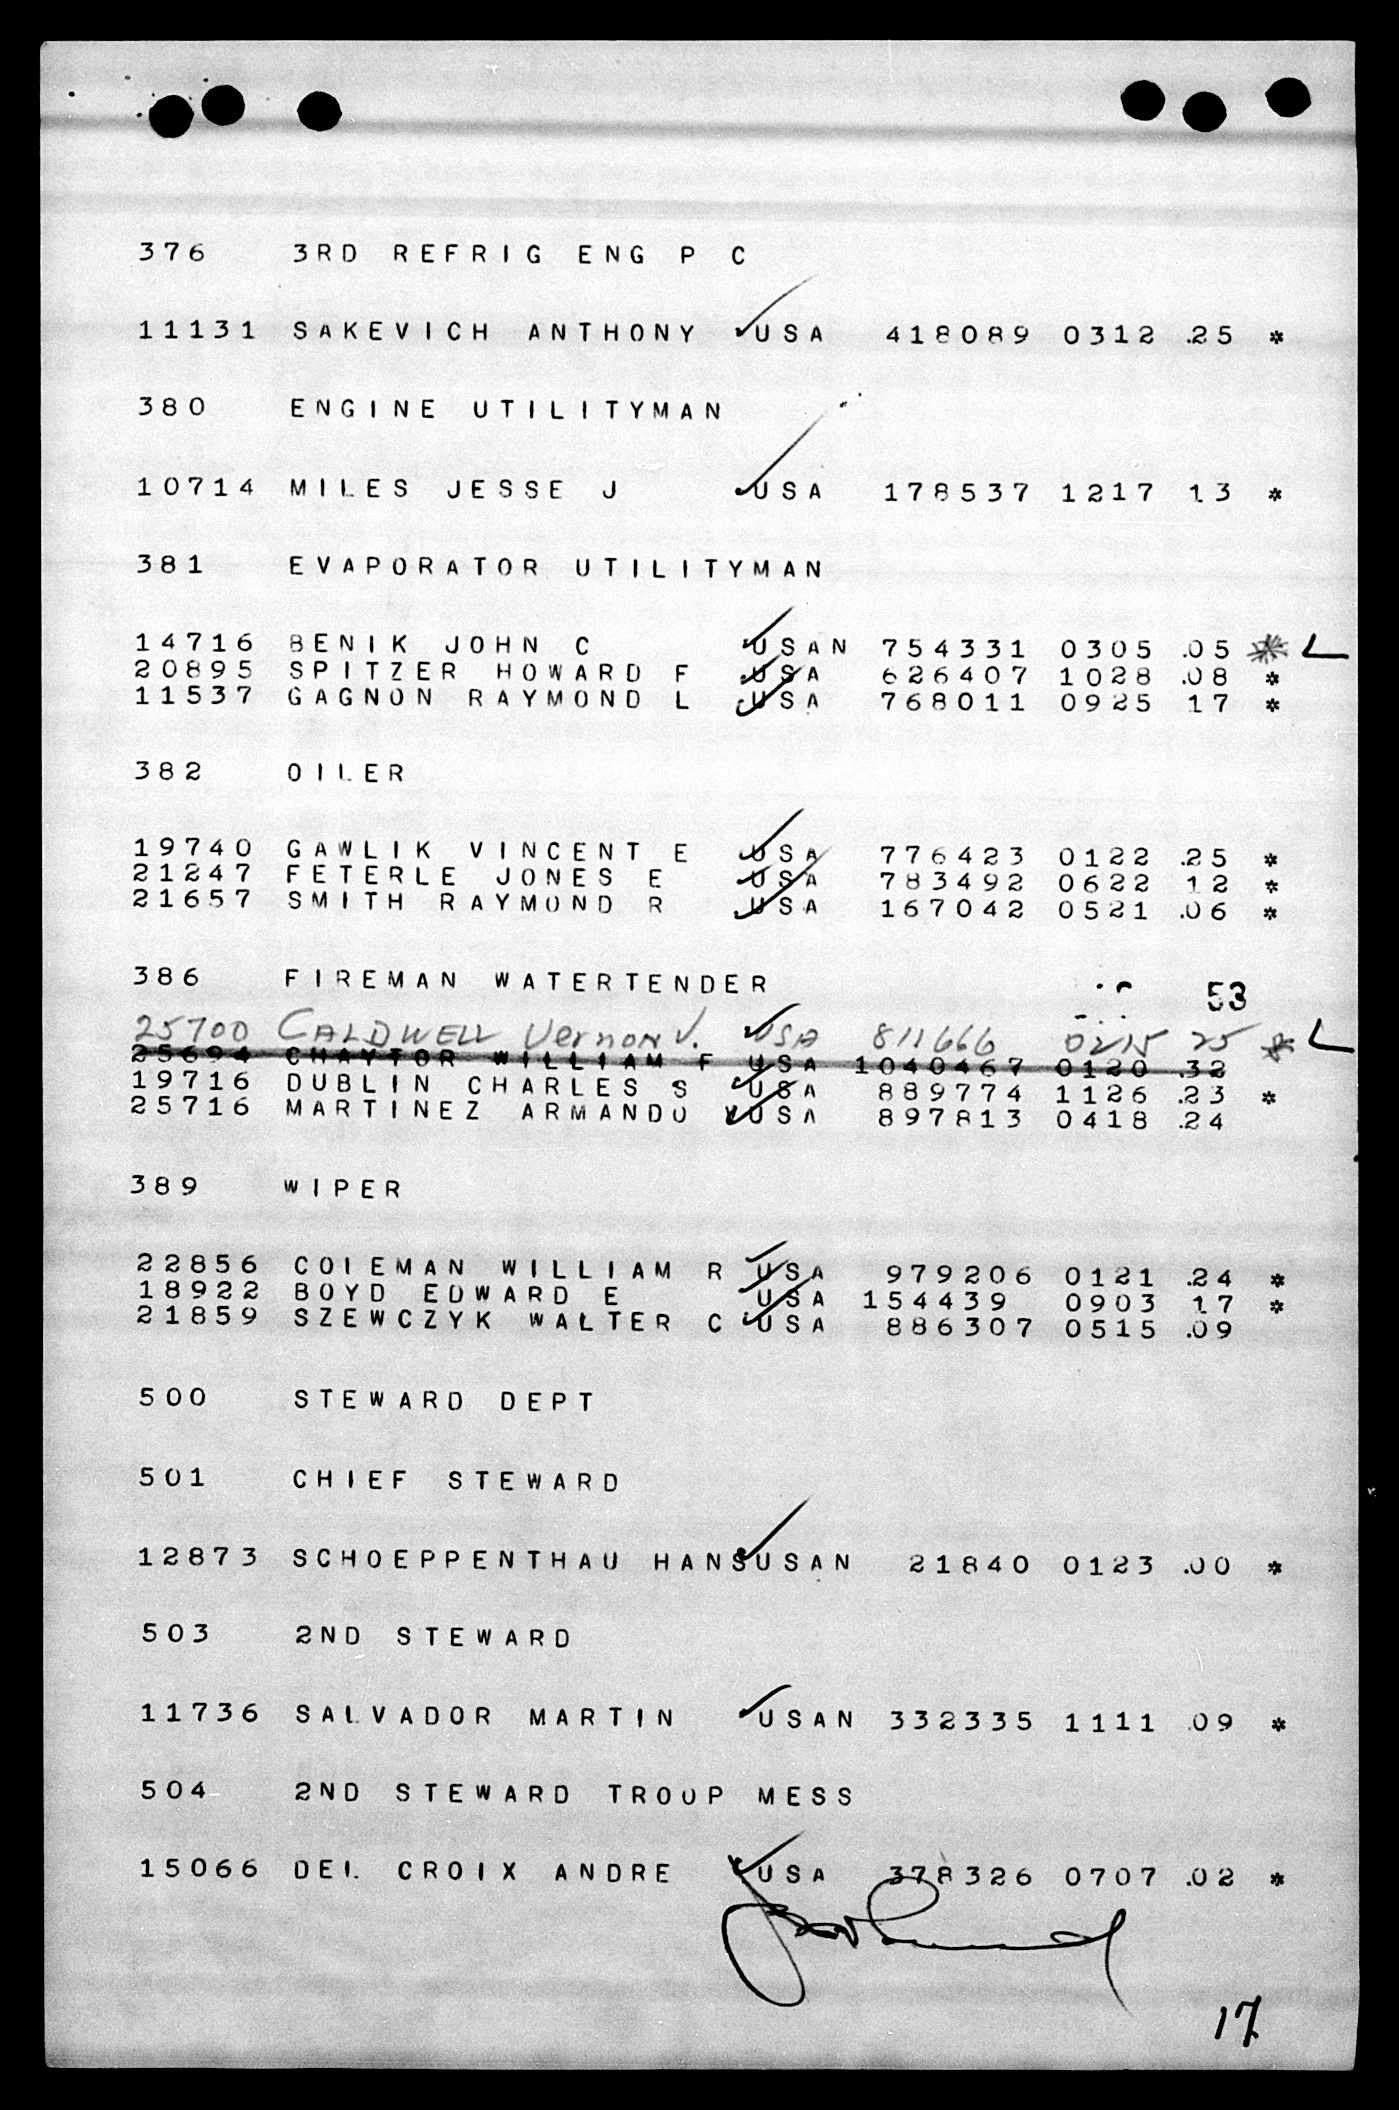 376 3RD REFRIG ENG P C
11131 SAKEVICH ANTHONY USA 418089 0312 .25 *
380 ENGINE UTILITYMAN
10714 MILES JESSE J USA 178537 1217 13 *
381 EVAPORATOR UTILITYMAN
14716 BENIK JOHN C USAN 754331 0305 .05 *
20895 SPITZER HOWARD F USA 626407 1028 .08 *
11537 GAGNON RAYMOND L USA 768011 0925 17 *
382 OILER
19740 GAWLIK VINCENT E USA 776423 0122 .25 *
21247 FETERLE JONES E USA 783492 0622 12 *
21657 SMITH RAYMOND R USA 167042 0521 .06 *
386 FIREMAN WATERTENDER
53
25700 CALDWELL Vernon V. USA 811666 0215 25 *
25694 CHAYTOR WILLIAM F USA 1040467 0120 .32
19716 DUBLIN CHARLES S USA 889774 1126 .23 *
25716 MARTINEZ ARMANDO V USA 897813 0418 .24
389 WIPER
22856 COLEMAN WILLIAM R USA 979206 0121 .24 *
18922 BOYD EDWARD E USA 154439 0903 17 *
21859 SZEWCZYK WALTER C USA 886307 0515 .09
500 STEWARD DEPT
501 CHIEF STEWARD
12873 SCHOEPPENTHAU HANSUSAN 21840 0123 .00 *
503 2ND STEWARD
11736 SALVADOR MARTIN USAN 332335 1111 09 *
504 2ND STEWARD TROOP MESS
15066 DEL CROIX ANDRE USA 378326 0707 .02 *
17